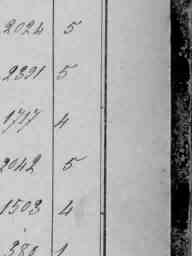 2024 5
2391 5
1717 4
2042 5
1503 4
389 1